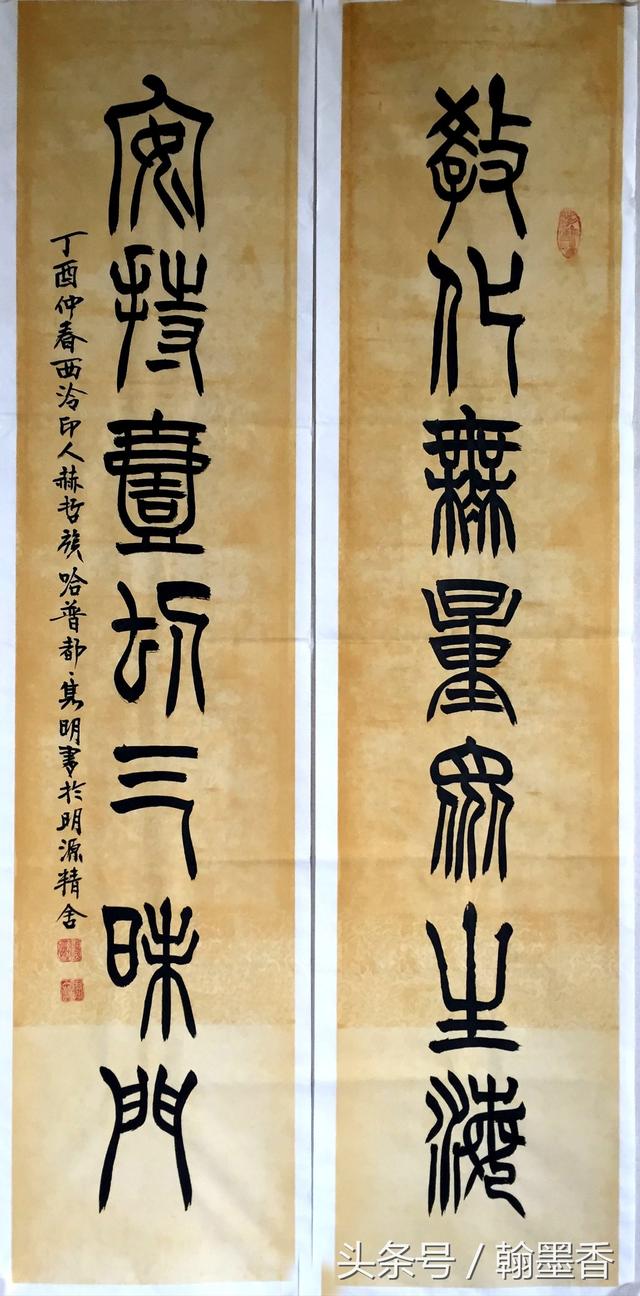 教化無量眾生海
安持壹切三昧門
丁酉仲春西泠印人赫哲族哈普都·隽明書於明源精舍
头条号 / 翰墨香